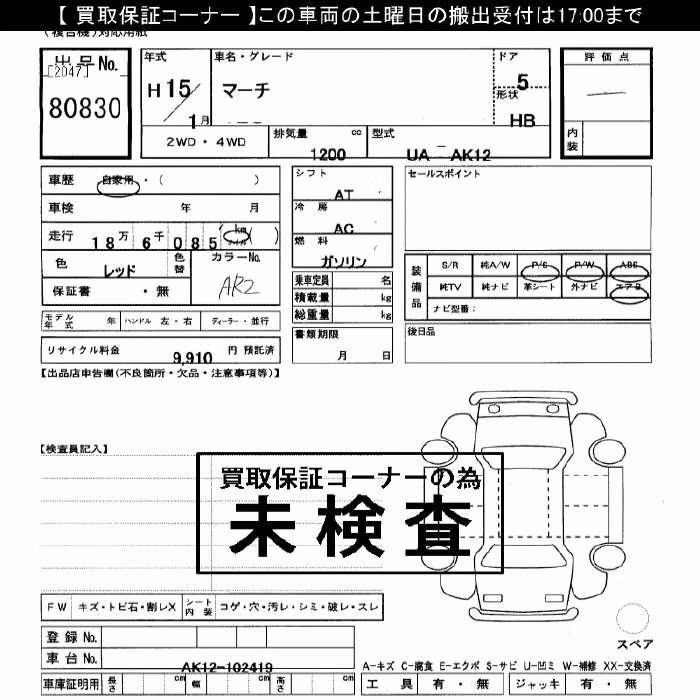 【 買取保証コーナー 】この車両の土曜日の搬出受付は17:00まで
(複合機)対応用紙
出品No. 年式 車名・グレード ドア 評価点
[2047]
80830 H15/1月 マーチ 5 形状 HB
2WD・4WD 排気量 cc 1200 型式 UA - AK12 内装
車歴 自家用・( ) シフト AT セールスポイント
車検 年 月 冷房 AC
走行 18万6千085 km 燃料 ガソリン
色 レッド 色替 カラーNo. AR2
保証書 ・無
乗車定員 名
積載量 kg
総重量 kg
装備品 S/R 純A/W P/S P/W ABS
純TV 純ナビ 革シート 外ナビ エアB
ナビ型番:
モデル年式 年 ハンドル 左・右 ディーラー・並行
書類期限 月 日
後日品
リサイクル料金 9,910 円 預託済
【出品店申告欄(不良箇所・欠品・注意事項等)】
【検査員記入】
買取保証コーナーの為
未検査
FW キズ・トビ石・割レX シート内装 コゲ・穴・汚レ・シミ・破レ・スレ
スペア
登録No.
車台No. AK12-102419
A-キズ C-腐食 E-エクボ S-サビ U-凹ミ W-補修 XX-交換済
車庫証明用 長さ cm 幅 cm 高さ cm 工具 有・無 ジャッキ 有・無